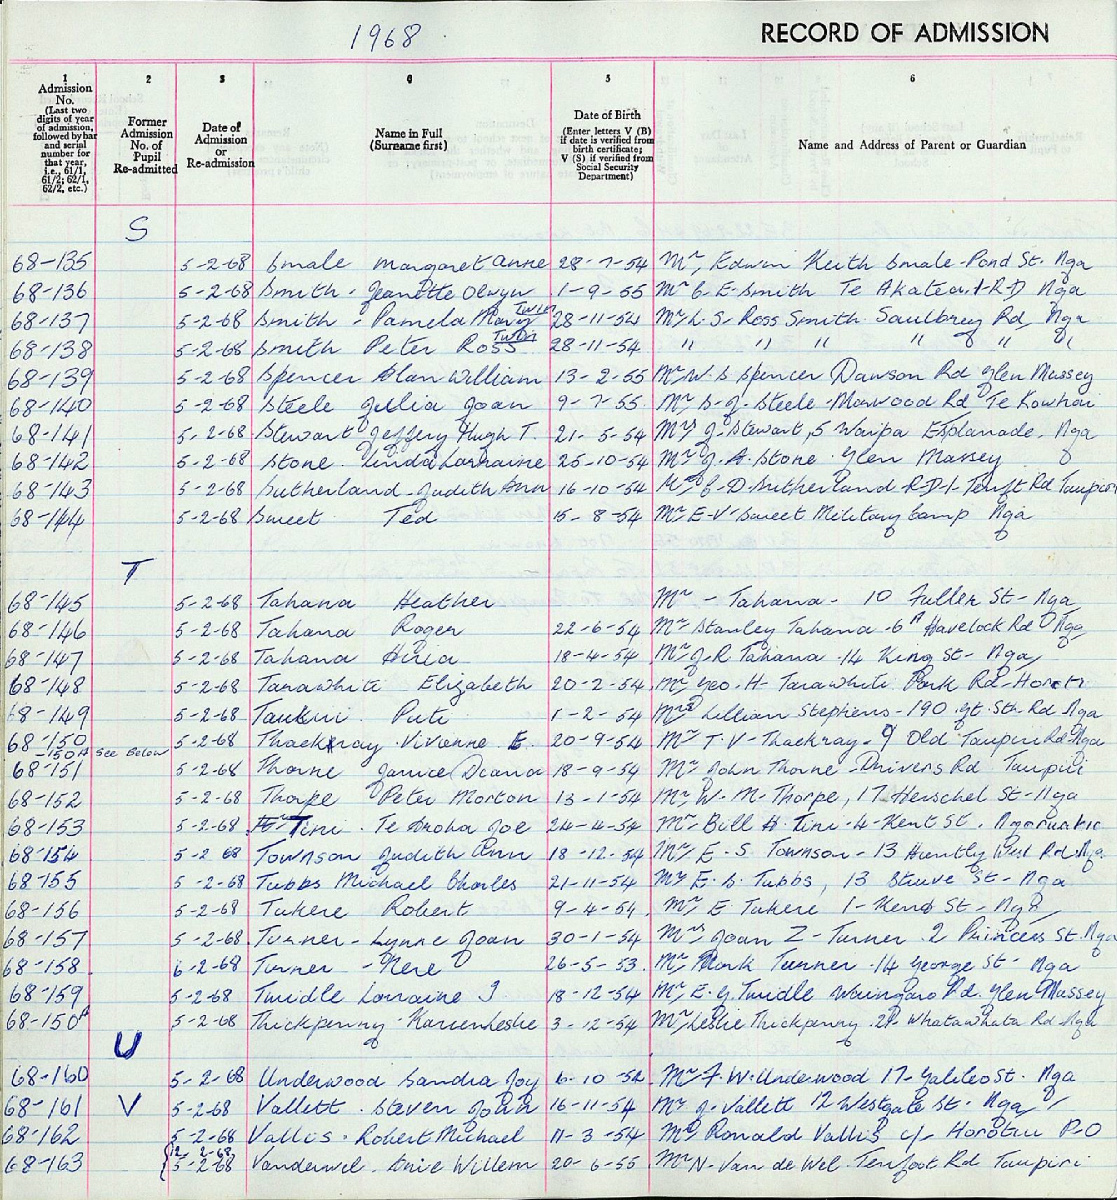 1968 RECORD OF ADMISSION
1 2 3 4 5 6
Admission No. (Last two digits of year of admission, followed by bar and serial number for that year, i.e., 61/1, 61/2; 62/1, 62/2, etc.)
Former Admission No. of Pupil Re-admitted
Date of Admission or Re-admission
Name in Full (Surname first)
Date of Birth (Enter letters V (B) if date is verified from birth certificate; V (S) if verified from Social Security Department.)
Name and Address of Parent or Guardian
S
68-135 5-2-68 Smale Margaret Anne 28-7-54 Mr Edwin Keith Smale - Pond St. Nga
68-136 5-2-68 Smith - Jeanette Olwyn 1-9-55 Mr C. E. Smith Te Akatea R.D Nga
68-137 5-2-68 Smith - Pamela Mary Twin 28-11-54 Mr L. S. Ross Smith Saulbrey Rd, Nga
68-138 5-2-68 Smith Peter Ross Twin 28-11-54 " " " " " "
68-139 5-2-68 Spencer Alan William 13-2-55 Mr W. S Spencer Dawson Rd Glen Massey
68-140 5-2-68 Steele Jillia Joan 9-7-55 Mr S. J. Steele - Marwood Rd Te Kowhai
68-141 5-2-68 Stewart Jeffery Hugh T. 21-5-54 Mrs J. Stewart, 5 Waipa Esplanade. Nga
68-142 5-2-68 Stone Linda Lorraine 25-10-54 Mr J. A. Stone Glen Massey
68-143 5-2-68 Sutherland - Judith Ann 16-10-54 C. D. Sutherland R.D.1 - Tenft Rd Taupiri
68-144 5-2-68 Sweet Ted 15-8-54 Mr E. V Sweet Military Camp Nga
T
68-145 5-2-68 Tahana Heather Mr - Tahana - 10 Fuller St - Nga
68-146 5-2-68 Tahana Roger 22-6-54 Mr Stanley Tahana - 6A Havelock Rd Nga
68-147 5-2-68 Tahana Hiria 18-4-54 Mr J. R Tahana - 14 King St - Nga
68-148 5-2-68 Tarawhiti Elizabeth 20-2-54 Mr Geo. H Tarawhiti Park Rd - Horotiu
68-149 5-2-68 Taukiri Puti 1-2-54 Mrs Lillian Stephens - 190 Gt. Sth Rd Nga
68-150 5-2-68 Thackray - Vivienne E 20-9-54 Mr T. V - Thackray - 9 Old Taupiri Rd Nga
-150A See Below
68-151 5-2-68 Thorne Janice Diana 18-9-54 Mr John Thorne - Drivers Rd Taupiri
68-152 5-2-68 Thorpe Peter Morton 13-1-54 Mr W. M - Thorpe, 17 Herschel St - Nga
68-153 5-2-68 Tini - Te Aroha Joe 24-4-54 Mr Bill H Tini - 4 - Kent St.
68-154 5-2-68 Townson Judith Ann 18-12-54 Mr E. S Townson - 13 Huntly West Rd - Nga
68-155 5-2-68 Tubbs Michael Charles 21-11-54 Mr E. S. Tubbs, 13 Struve St - Nga
68-156 5-2-68 Tukere Robert 9-4-54 Mr E Tukere 1 - Kent St - Nga
68-157 5-2-68 Turner - Lynne Joan 30-1-54 Mrs Joan Z - Turner 2 Princess St Nga
68-158 6-2-68 Turner - Nere 26-5-53 Mr Mark Turner - 14 George St - Nga
68-159 5-2-68 Twidle Lorraine J. 18-12-54 Mr E. G. Twidle Waingaro Rd. Glen Massey
68-150A 5-2-68 Thickpenny Karen Leslie 3-12-54 Mr Leslie Thickpenny 21 Whatawhata Rd Nga
U
68-160 5-2-68 Underwood Sandra Joy 6-10-54 Mr F. W. Underwood 17 - Galileo St. Nga
68-161 V 5-2-68 Vallett - Steven John 16-11-54 Mr J. Vallett 12 Westgate St - Nga
68-162 5-2-68 Vallis - Robert Michael 11-3-54 Mr Ronald Vallis c/- Horotiu P.O
12-2-68
68-163 5-2-68 Vanderwel - Arie Willem 20-6-55 Mr N - Van de Wel - Tenfoot Rd Taupiri